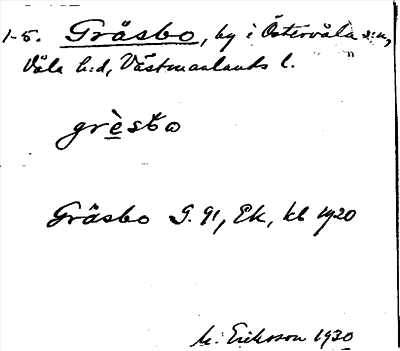 1-5. Gräsbo, by i Östervåla s:n,
Våla h:d, Västmanlands l.
grèsbo
Gräsbo G. 91, Ek, kb 1920
M. Eriksson 1930